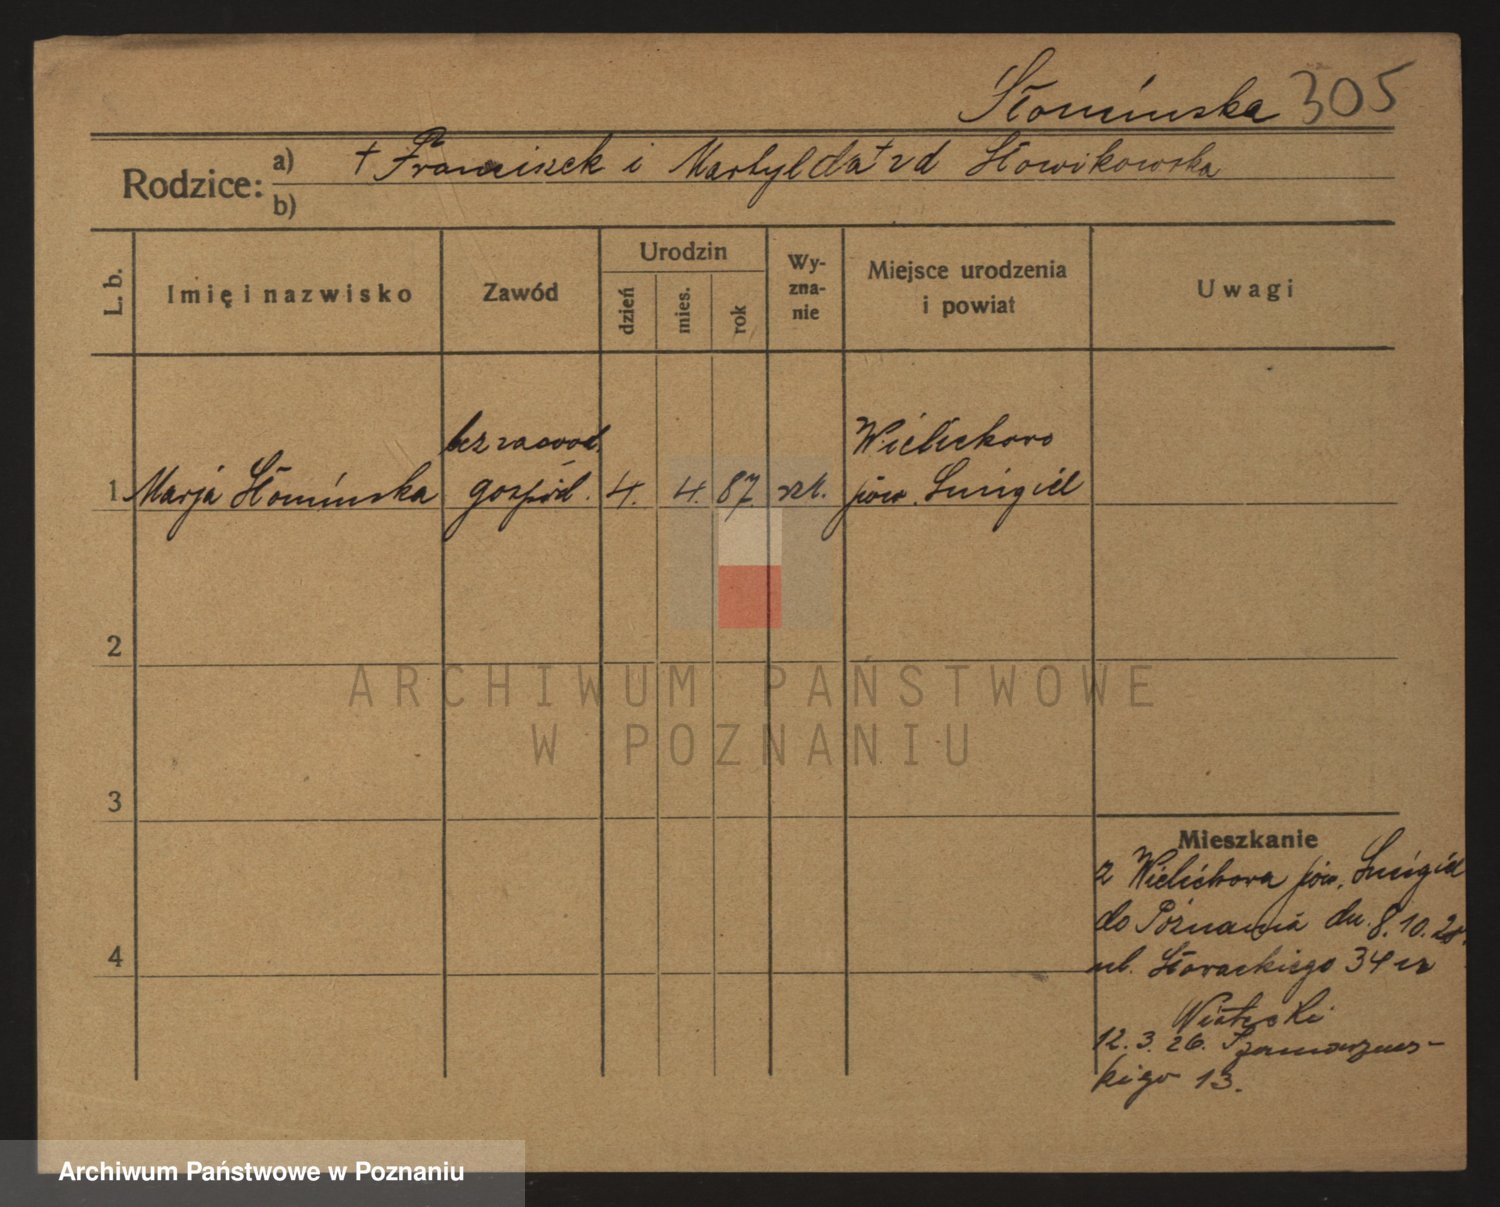 Słomińska 305
Rodzice: a) † Franciszek i Martylda † zd Słowikowska
b)
L. b.
Imię i nazwisko
Zawód
Urodzin
dzień
mies.
rok
Wy-
zna-
nie
Miejsce urodzenia
i powiat
Uwagi
bez zawod.
Wielichowo
1 Marja Słomińska gospod. 4. 4. 87 rzk. pow. Śmigiel
2
ARCHIWUM PAŃSTWOWE
W POZNANIU
3
Mieszkanie
z Wielichowa pow. Śmigiel
do Poznania dn. 8.10.20.
4
ul. Słowackiego 34 u
12. 3. 26. Szamarzews-
kiego 13.
Archiwum Państwowe w Poznaniu